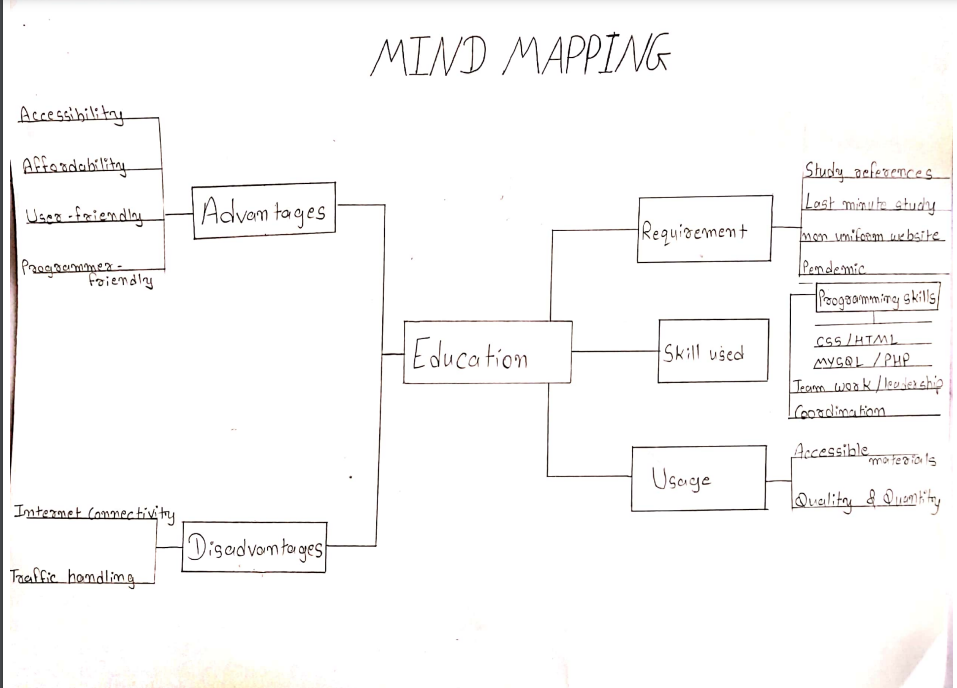 MIND MAPPING
Accessibility
Affordability
User-friendly
Programmer-
friendly
Advantages
Internet Connectivity
Traffic handling
Disadvantages
Education
Requirement
Study references
Last minute study
non uniform website
Pendemic
Skill used
Programming skills
CSS/HTML
MYSQL/PHP
Team work/leadership
Coordination
Usage
Accessible
materials
Quality & Quantity